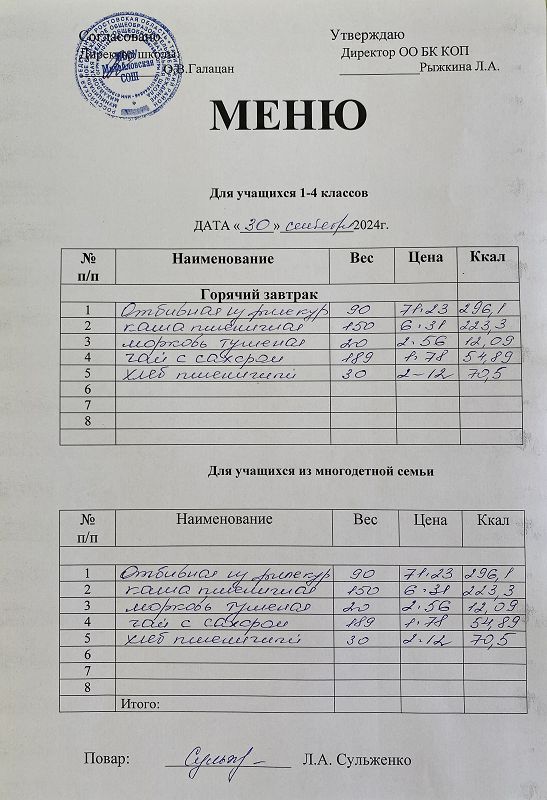 Согласовано Утверждаю
Директор школы Директор ОО БК КОП
О.В.Галацан Рыжкина Л.А.
МЕНЮ
Для учащихся 1-4 классов
ДАТА « 30 » сентября 2024г.
№ п/п Наименование Вес Цена Ккал
Горячий завтрак
1 Отбивная из филе кур 90 71.23 296,1
2 каша пшеничная 150 6.31 223,3
3 морковь тушеная 20 2.56 12,09
4 чай с сахаром 189 1.78 54,89
5 хлеб пшеничный 30 2-12 70,5
6
7
8
Для учащихся из многодетной семьи
№ п/п Наименование Вес Цена Ккал
1 Отбивная из филе кур 90 71.23 296,1
2 каша пшеничная 150 6.31 223,3
3 морковь тушеная 20 2.56 12,09
4 чай с сахаром 189 1.78 54,89
5 хлеб пшеничный 30 2.12 70,5
6
7
8
Итого:
Повар: Л.А. Сульженко